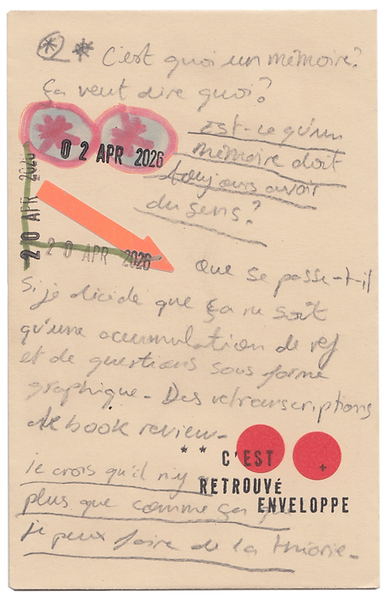 * * C'est quoi un mémoire?
Ça veut dire quoi?
Est-ce qu'un
mémoire doit
toujours avoir
du sens?
02 APR 2026
20 APR 2026
20 APR 2026
Que se passe-t-il
si je décide que ça ne soit
qu'une accumulation de ref
et de questions sous forme
graphique - Des retranscriptions
de book review -
je crois qu'il n'y
plus que comme ça
je peux faire de la théorie -
* * C'EST +
RETROUVÉ
ENVELOPPE